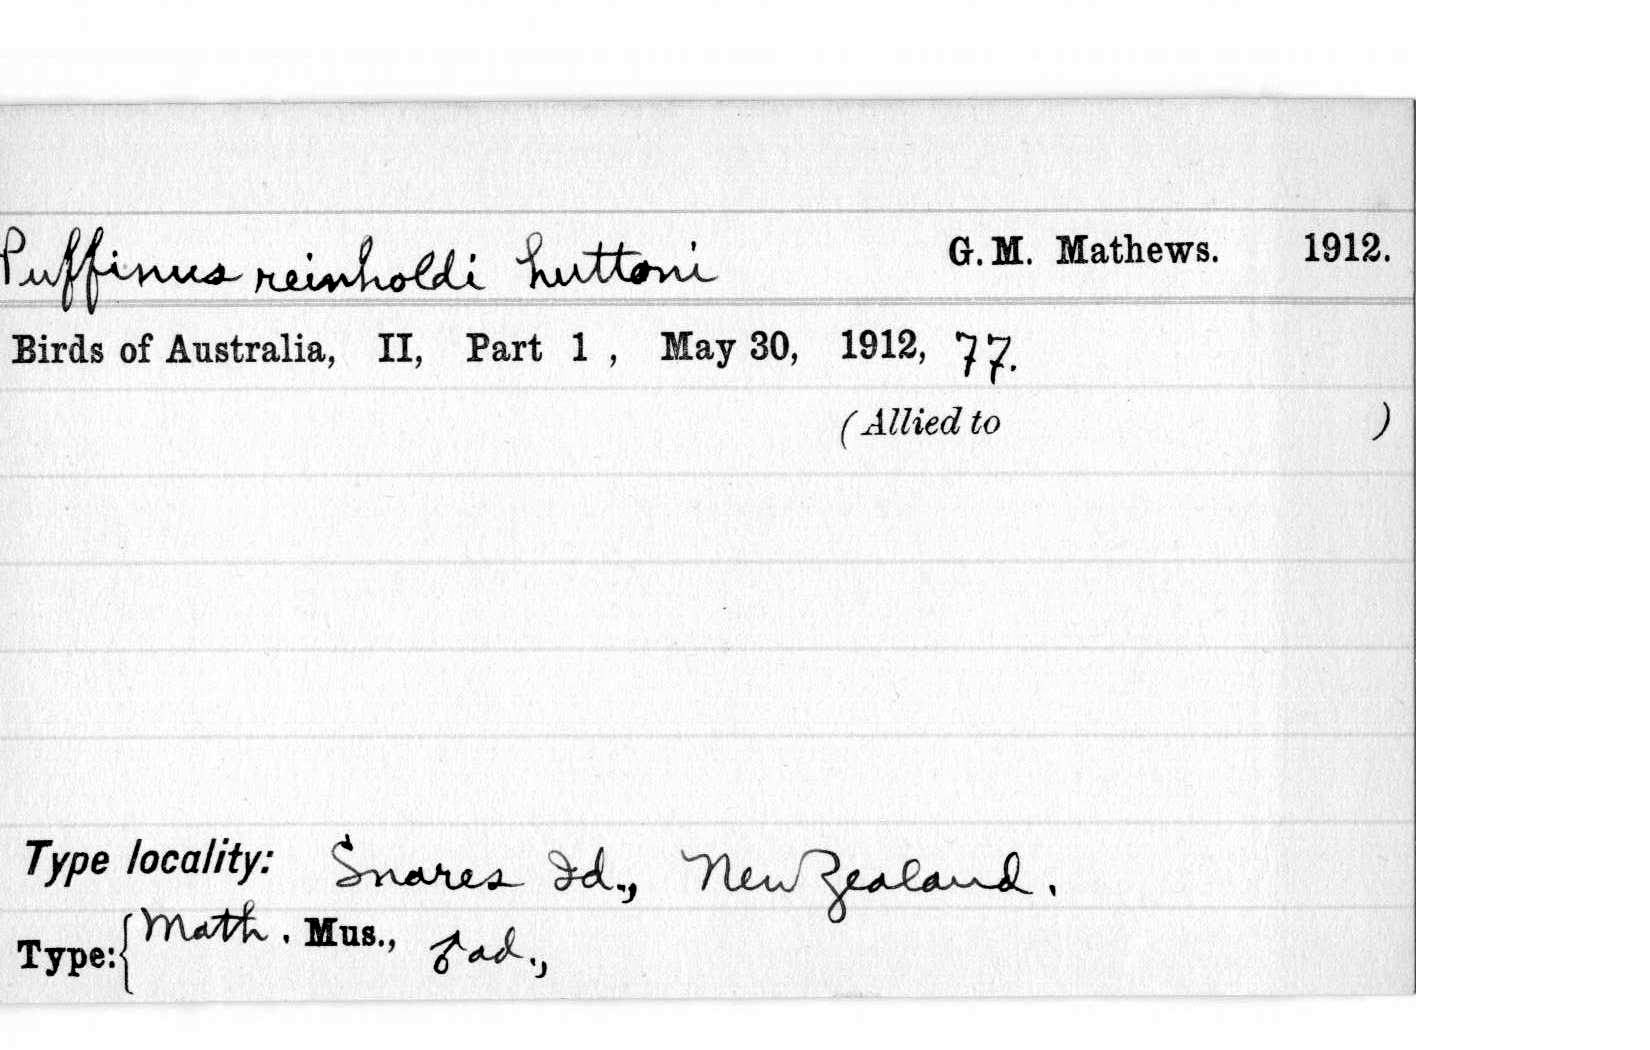 Puffinus reinholdi huttoni G. M. Mathews. 1912.
Birds of Australia, II, Part 1 , May 30, 1912, 77.
(Allied to )
Type locality: Snares Id., New Zealand.
Type: { Math. Mus., ♂ ad.,